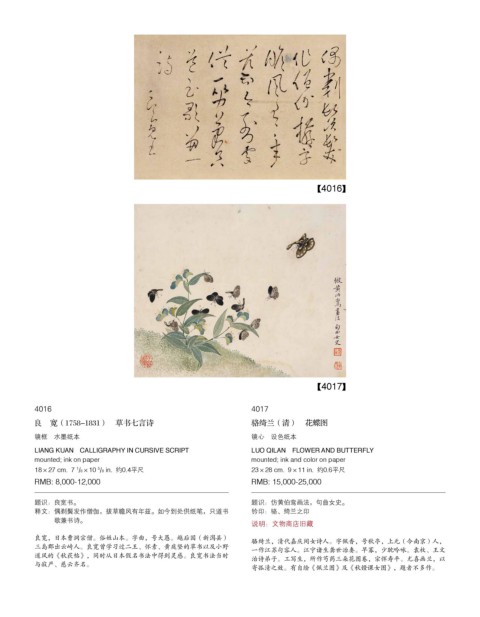 【4016】
【4017】
4016
良 宽（1758-1831） 草书七言诗
镜框 水墨纸本
LIANG KUAN CALLIGRAPHY IN CURSIVE SCRIPT
mounted; ink on paper
18×27 cm. 7 1/8×10 5/8 in. 约0.4平尺
RMB: 8,000-12,000
题识：良宽书。
释文：偶剃鬓发作僧伽，拔草瞻风有年兹。如今到处供纸笔，只道书
歌兼书诗。
良宽，日本曹洞宗僧。俗姓山本。字曲，号大愚。越后国（新潟县）
三岛郡出云崎人。良宽曾学习过二王、怀素、黄庭坚的草书以及小野
道风的《秋萩帖》，同时从日本假名书法中得到灵感。良宽书法当时
与寂严、慈云齐名。
4017
骆绮兰（清） 花蝶图
镜心 设色纸本
LUO QILAN FLOWER AND BUTTERFLY
mounted; ink and color on paper
23×28 cm. 9×11 in. 约0.6平尺
RMB: 15,000-25,000
题识：仿黄伯鸾画法，句曲女史。
钤印：骆、绮兰之印
说明：文物商店旧藏
骆绮兰，清代嘉庆间女诗人。字佩香，号秋亭，上元（今南京）人，
一作江苏句容人。江宁诸生龚世治妻。早寡，少耽吟咏，袁枚、王文
治诗弟子。工写生，所作芍药三朵花图卷，宗恽寿平。尤喜画兰，以
寄孤清之致。有自绘《佩兰图》及《秋灯课女图》，题者不多作。